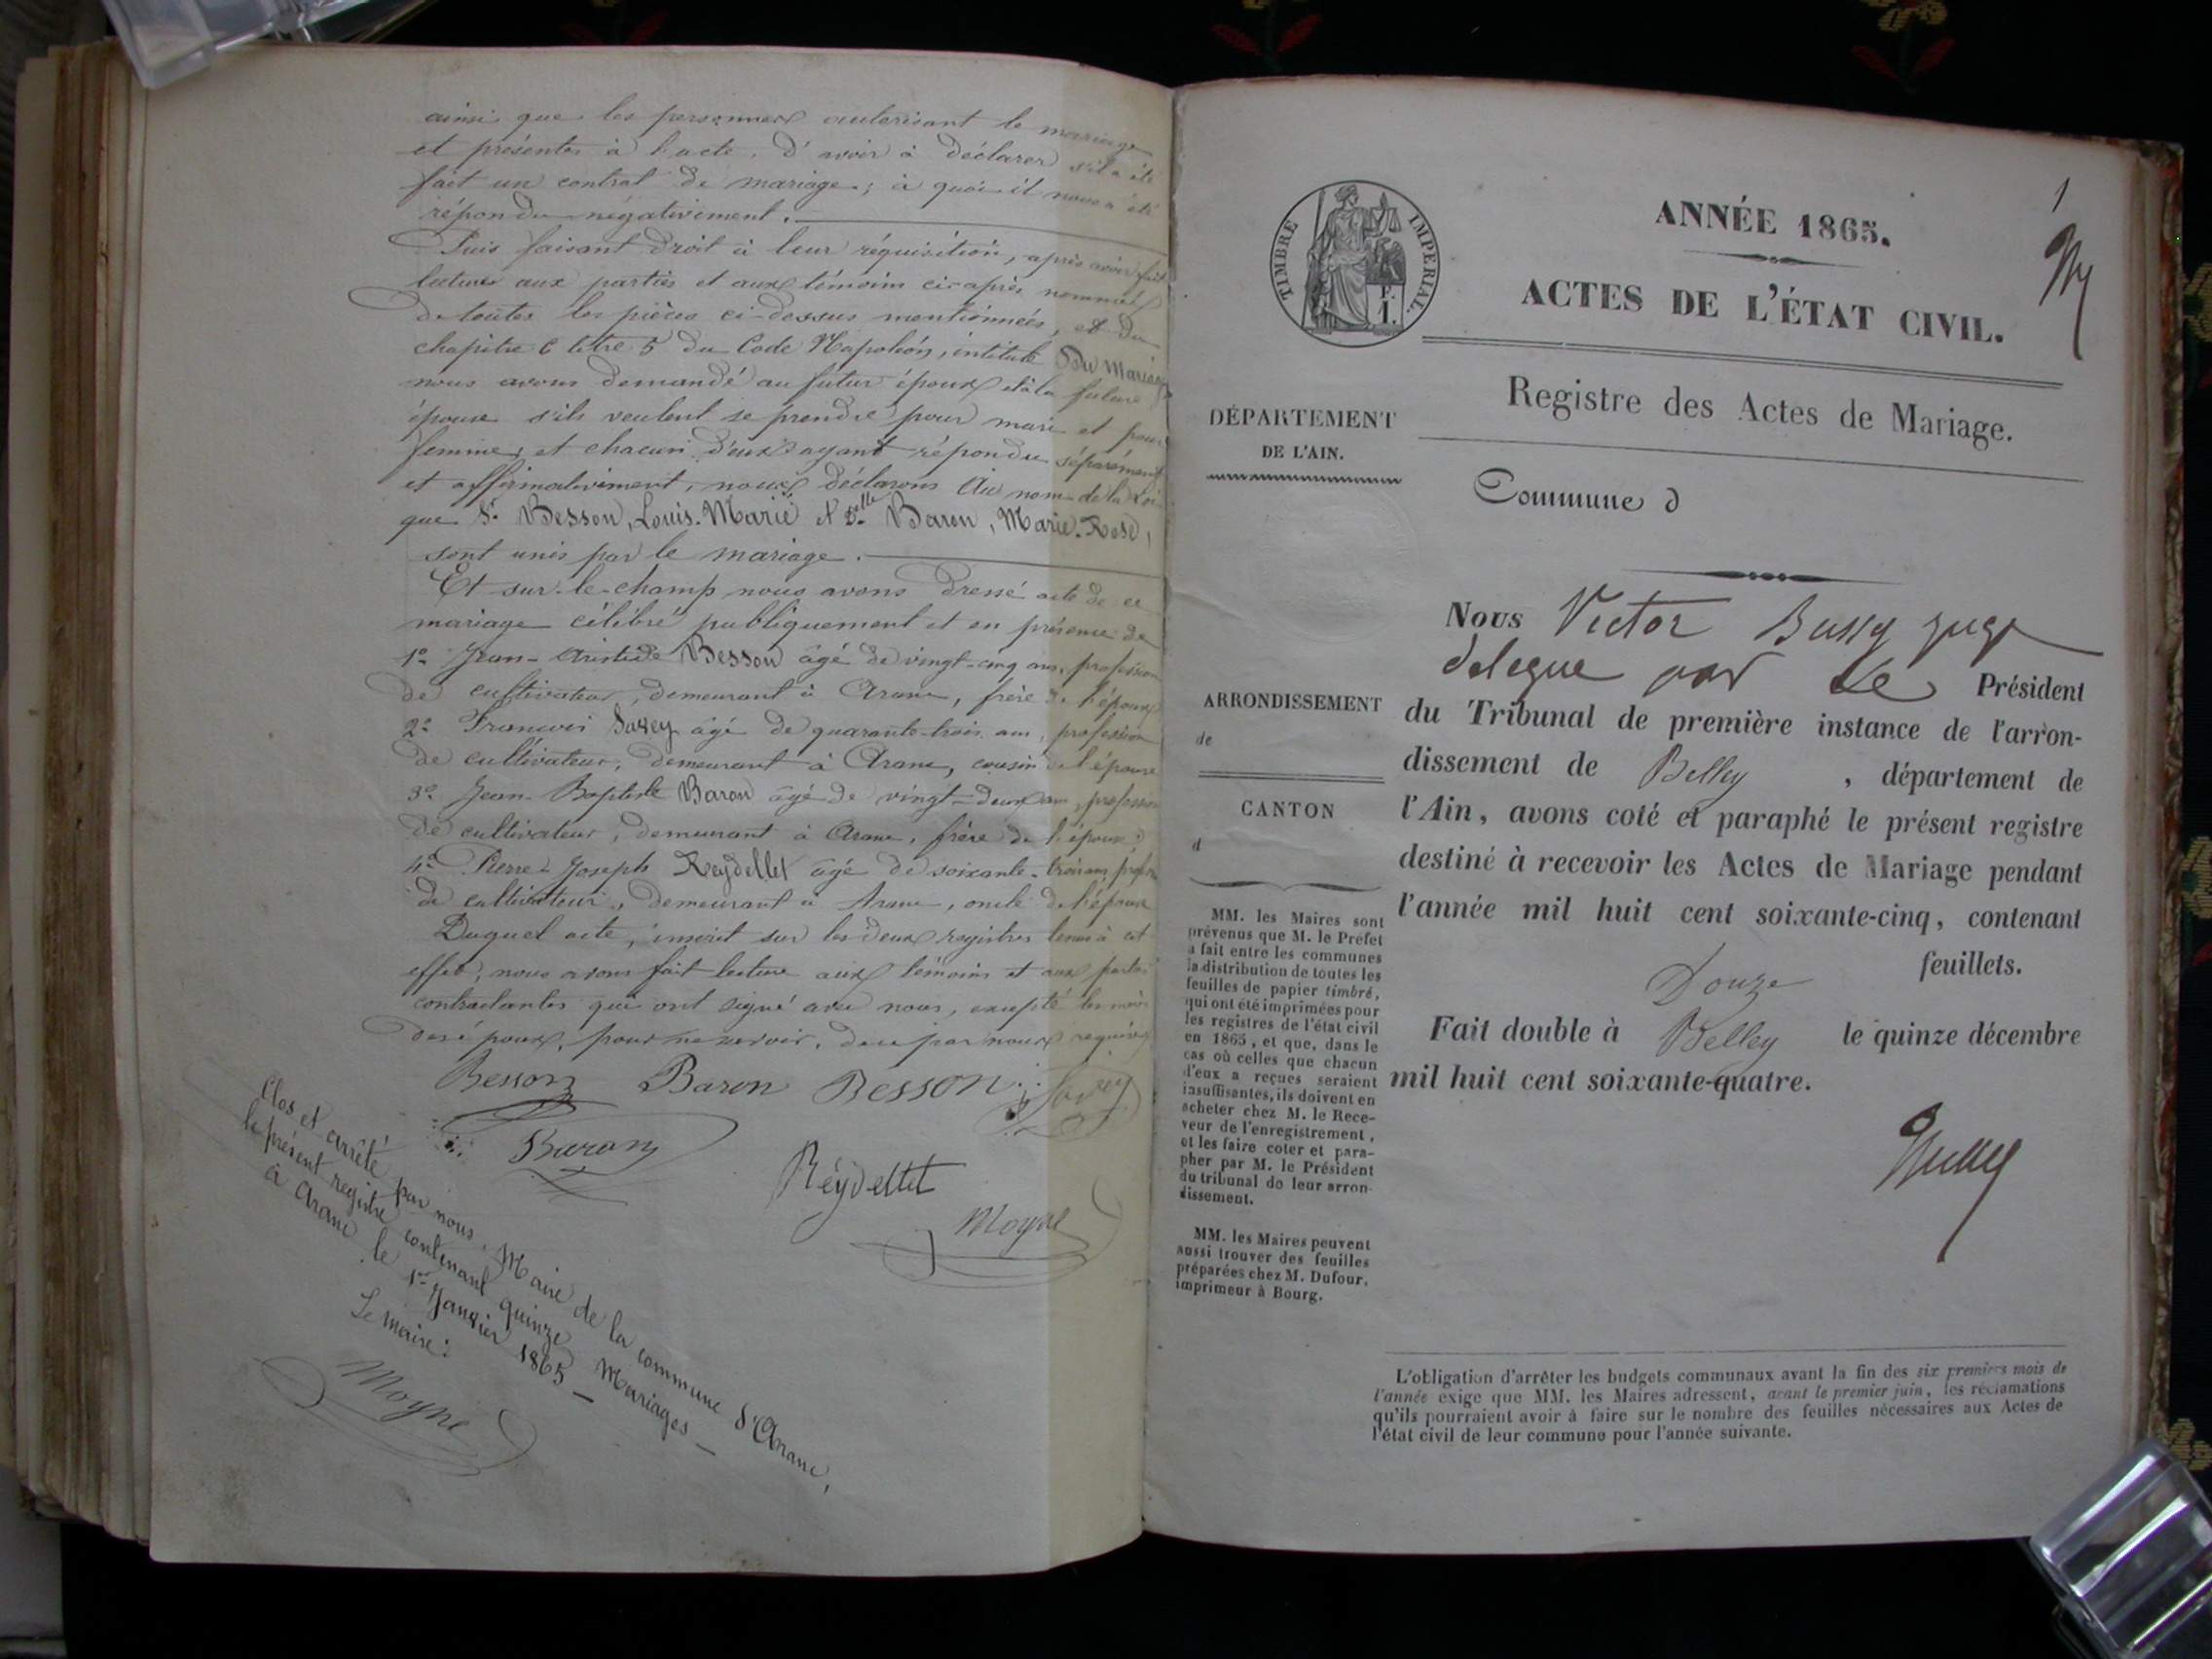 ainsi que les personnes autorisant le mariage
et présentes à l'acte, d'avoir à déclarer s'il a été
fait un contrat de mariage; à quoi il nous a été
répondu négativement.
Puis faisant droit à leur réquisition, après avoir fait
lecture aux parties et aux témoins ci-après nommés
de toutes les pièces ci-dessus mentionnées, et du
chapitre 6 titre 5 du Code Napoléon, intitulé Du Mariage
nous avons demandé au futur époux et à la future
épouse s'ils veulent se prendre pour mari et pour
femme, et chacun d'eux ayant répondu séparément
et affirmativement, nous déclarons Au nom de la Loi
que Sr. Besson, Louis-Marie et Delle Baron, Marie-Rose,
sont unis par le mariage.
Et sur-le-champ nous avons dressé acte de ce
mariage célébré publiquement et en présence de
1o Jean-Aristide Besson âgé de vingt-cinq ans, profession
de cultivateur, demeurant à Aranc, frère de l'époux
2o François Savey âgé de quarante-trois ans, profession
de cultivateur, demeurant à Aranc, cousin de l'épouse
3o Jean-Baptiste Baron âgé de vingt-deux ans, profession
de cultivateur, demeurant à Aranc, frère de l'épouse;
4o Pierre-Joseph Reydellet âgé de soixante-trois ans
de cultivateur, demeurant à Aranc, oncle de l'épouse
Duquel acte, inscrit sur les deux registres tenus à cet
effet, nous avons fait lecture aux témoins et aux parties
contractantes qui ont signé avec nous, excepté les mères
des époux, pour ne savoir, de ce par nous requises
Besson Baron BESSON Savey
Baron
Réydellet
Moyne
Clos et arrêté par nous, Maire de la commune d'Aranc,
le présent registre contenant quinze Mariages —
à Aranc le 1er Janvier 1865 —
Le maire:
Moyne
1
TIMBRE IMPÉRIAL.
ANNÉE 1865.
ACTES DE L'ÉTAT CIVIL.
Registre des Actes de Mariage.
DÉPARTEMENT
DE L'AIN.
Commune d
ARRONDISSEMENT
de
CANTON
d
MM. les Maires sont
prévenus que M. le Préfet
a fait entre les communes
la distribution de toutes les
feuilles de papier timbré,
qui ont été imprimées pour
les registres de l'état civil
en 1865, et que, dans le
cas où celles que chacun
d'eux a reçues seraient
insuffisantes, ils doivent en
acheter chez M. le Rece-
veur de l'enregistrement,
et les faire coter et para-
pher par M. le Président
du tribunal de leur arron-
dissement.
MM. les Maires peuvent
aussi trouver des feuilles
préparées chez M. Dufour,
imprimeur à Bourg.
Nous Victor Bussy juge
delegue par le Président
du Tribunal de première instance de l'arron-
dissement de Belley, département de
l'Ain, avons coté et paraphé le présent registre
destiné à recevoir les Actes de Mariage pendant
l'année mil huit cent soixante-cinq, contenant
Douze feuillets.
Fait double à Belley le quinze décembre
mil huit cent soixante-quatre.
L'obligation d'arrêter les budgets communaux avant la fin des six premiers mois de
l'année exige que MM. les Maires adressent, avant le premier juin, les réclamations
qu'ils pourraient avoir à faire sur le nombre des feuilles nécessaires aux Actes de
l'état civil de leur commune pour l'année suivante.